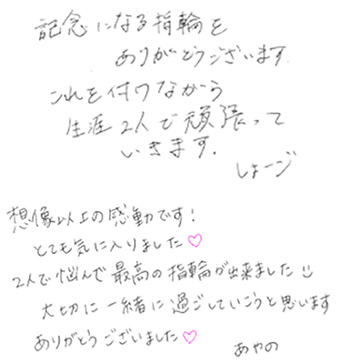 記念になる指輪を
ありがとうございます
これを付けながら
生涯2人で頑張って
いきます.
しょーじ
想像以上の感動です!
とても気に入りました♡
2人で悩んで最高の指輪が出来ました☺
大切に一緒に過ごしていこうと思います
ありがとうございました♡
あやの